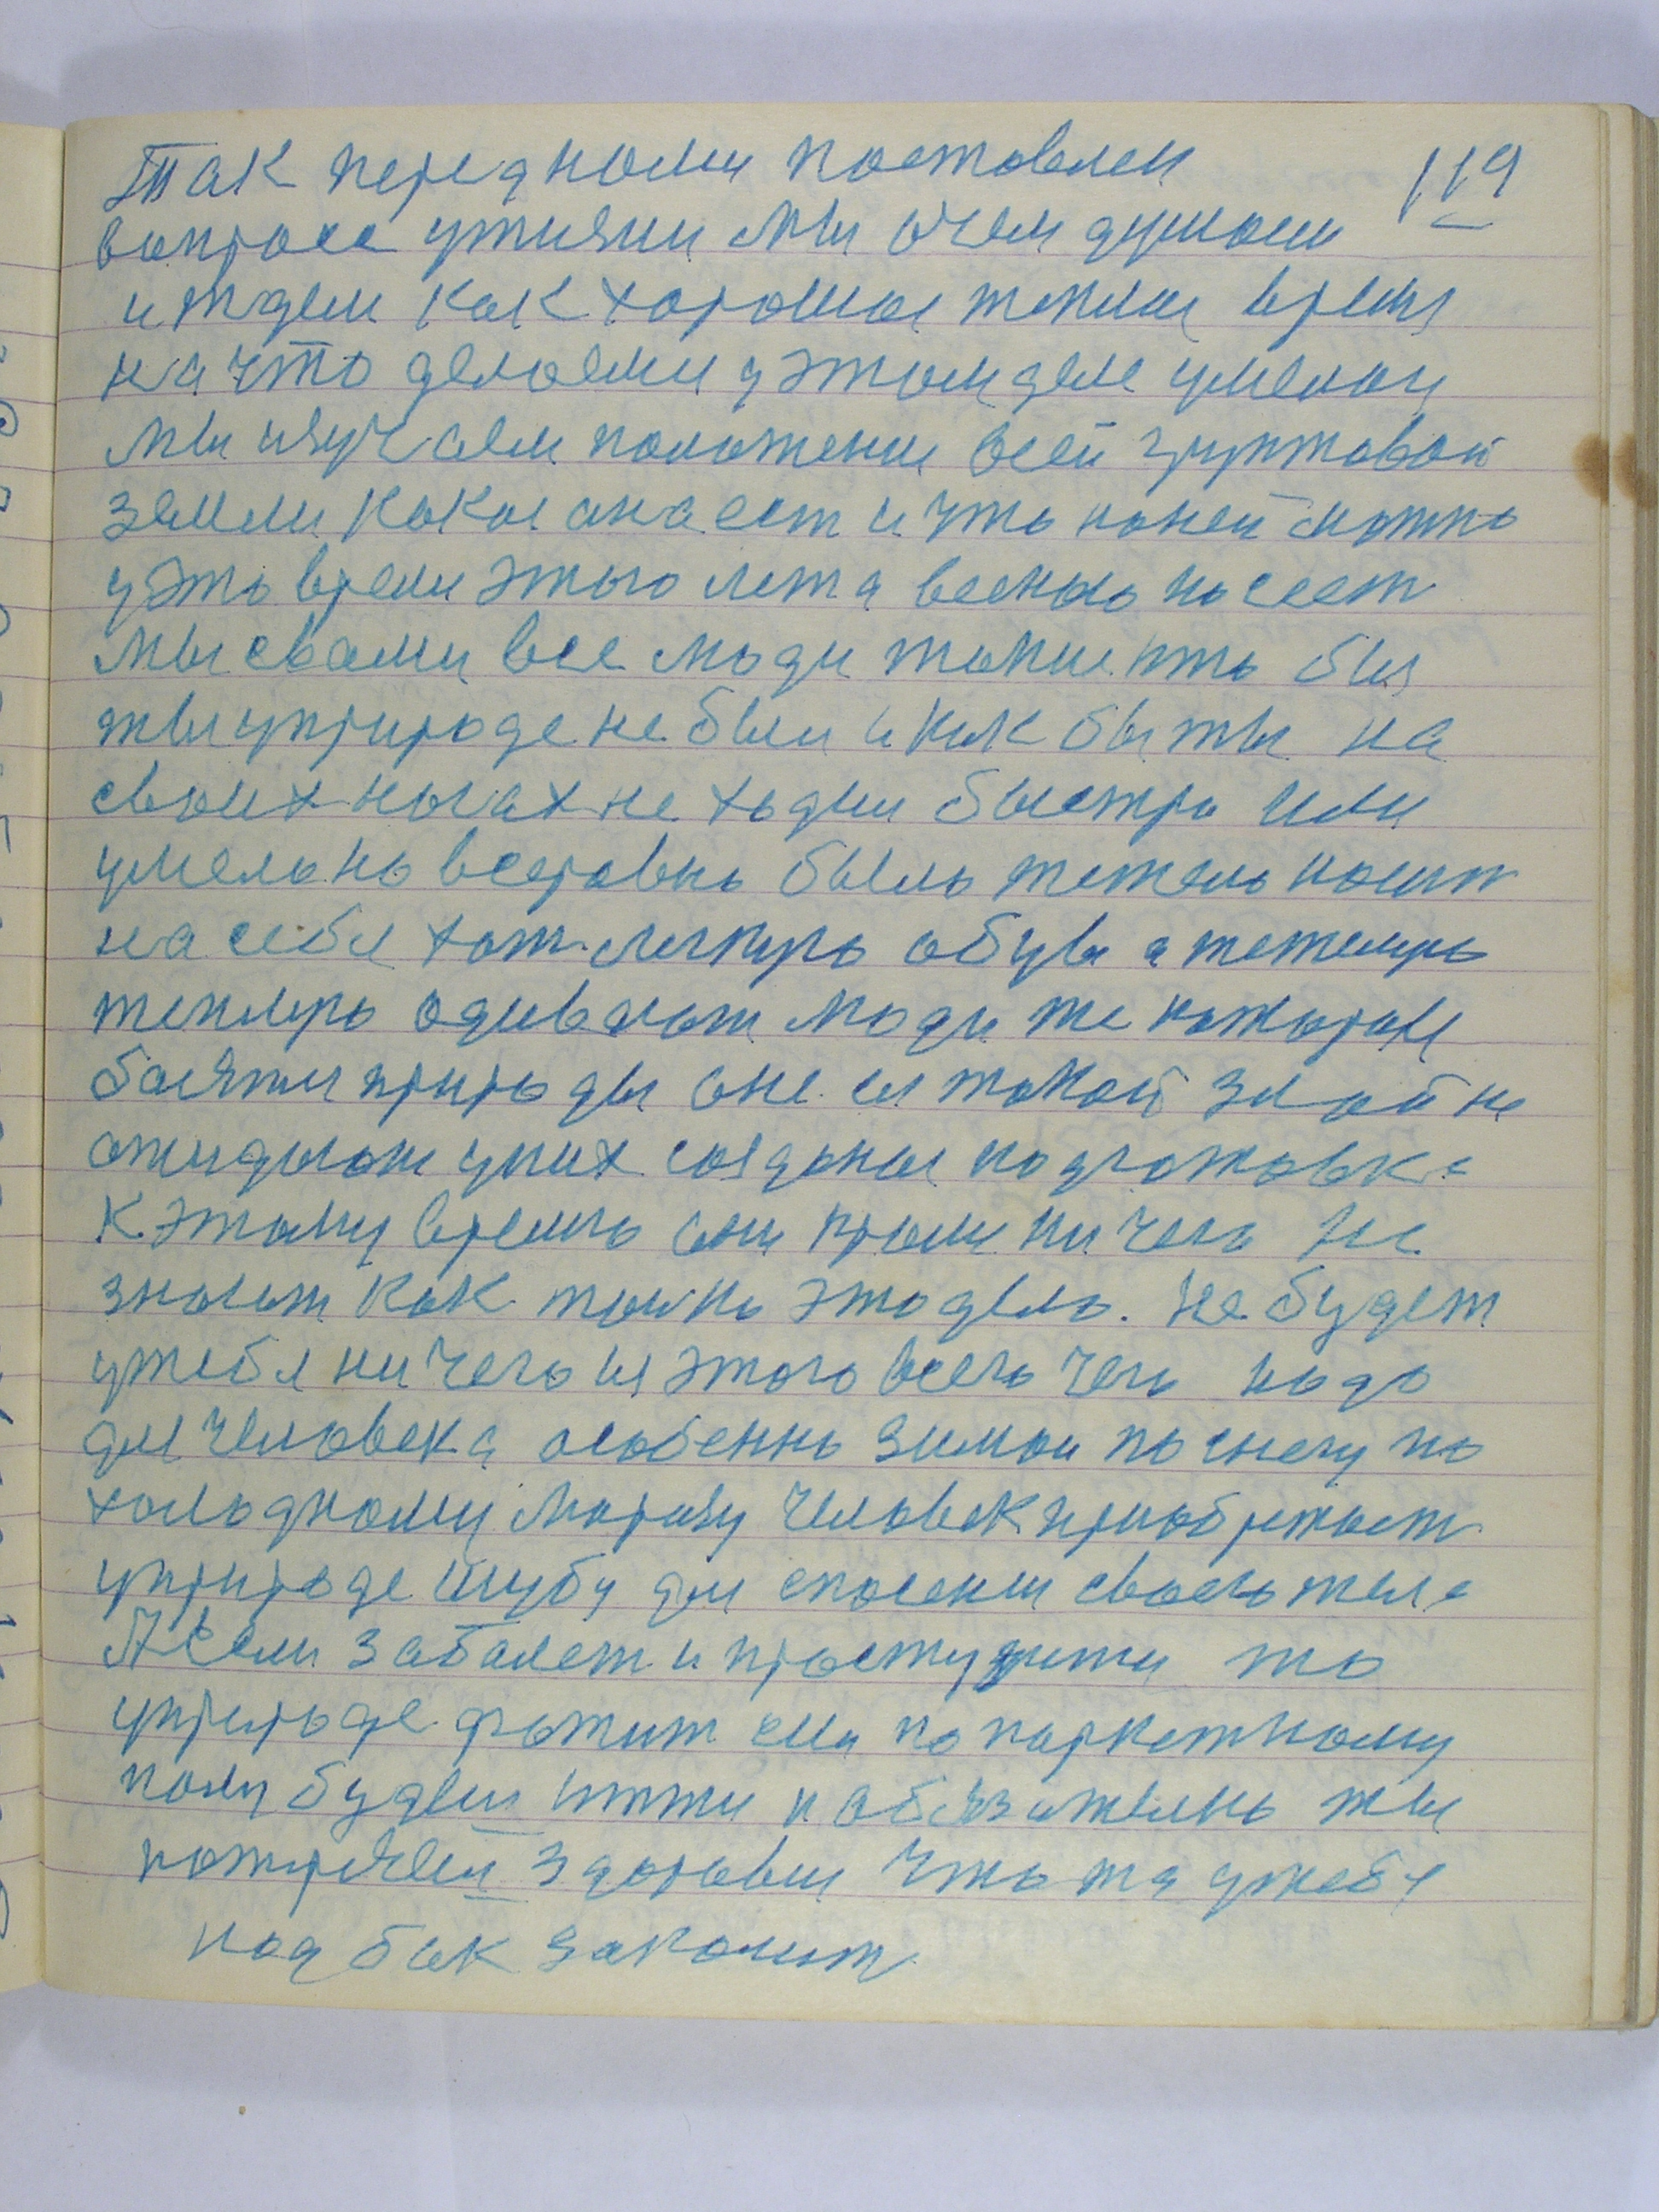 119
Так перед нами поставлен
вопросе ужизни Мы очем думаем
и ждем как хорошое теплое время
на что делаеми у этом деле умелои
Мы изучаем положение всей грунтовой
земли какое она ест и что наней можно
у это время этого лета весною посеет
Мы свами все люди такие што бы
ты уприроде не был и как бы ты на
своих ногах не ходил быстро или
умело но всеровно было тежело носит
на себе хот легкую обув а тежелую
теплую одивают люди те которые
боятся природы оне ея такой злой не
ожидают уних создоное подготовка
К этому времю они кроме ни чего не
знают как только это дело. Не будет
утебя ни чего из этого всего чего надо
для человека особенно зимои по снегу по
холодному морозу человек приобретает
уприроде шубу для спасения своего тела
А если заболеет и простудится то
уприроде лежит или по паркетному
полу будеш итти и обязательно ты
потеряеш здоровие что та утебя
под бок заколит